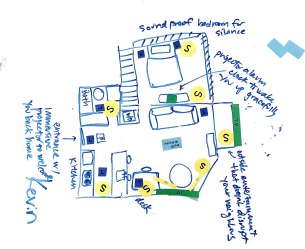 sound proof bedroom for
silence
projector alarm
clock to wake
you up gracefully
outside entertainment
that don't disrupt
your neighbors
desk
Kitchen
entrance w/
immersive
projector to welcome
you back home
Kevin
S
S
S
S
S
S
S